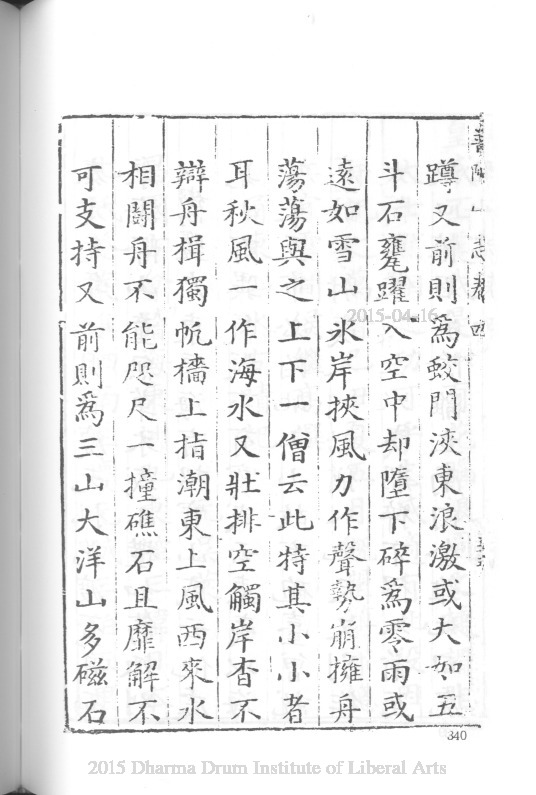 普陀山志卷四
蹲又前則爲蛟門浹東浪激或大如五
斗石甕躍入空中却墮下碎爲零雨或
遠如雪山氷岸挾風力作聲勢崩擁舟
蕩蕩與之上下一僧云此特其小小者
耳秋風一作海水又壯排空觸岸杳不
辯舟楫獨帆檣上指潮東上風西來水
相鬪舟不能咫尺一撞礁石且靡解不
可支持又前則爲三山大洋山多磁石
340
2015-04-16
2015 Dharma Drum Institute of Liberal Arts